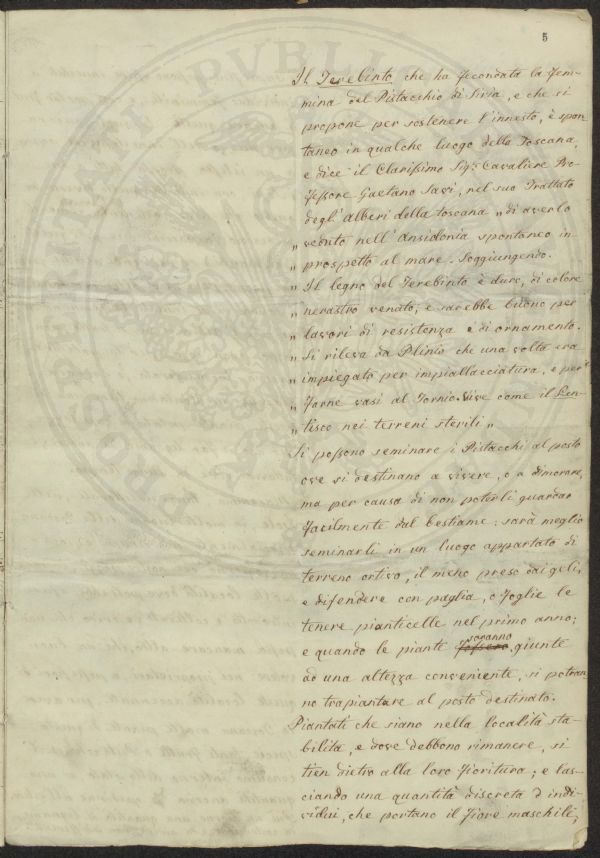 5
Il Terebinto che ha fecondata la Fem-
mina del Pistacchio di Siria, e che si
propone per sostenere l'innesto, è spon
taneo in qualche luogo della Toscana,
e dice il Clarissimo Sigr. Cavaliere Pro-
fessore Gaetano Savi, nel suo Trattato
degl'Alberi della toscana „ di averlo
„ veduto nell'Ansidonia spontaneo in
„ prospetto al mare. Soggiungendo.
„ Il legno del Terebinto è duro, di colore
„ nerastro venato, e sarebbe buono per
„ lavori di resistenza e di ornamento.
„ Si rileva da Plinio che una volta era
„ impiegato per impiallacciatura, e per
„ Farne vasi al Tornio. Vive come il Len-
„ tisco nei terreni sterili „
Si possono seminare i Pistacchi al posto
ove si destinano a vivere, o a dimorare,
ma per causa di non poterli guardar
facilmente dal bestiame: sarà meglio
seminarli in un luogo appartato di
terreno ortivo, il meno preso dai geli,
e difendere con paglia, o foglie le
tenere pianticelle nel primo anno;
saranno
e quando le piante fossero giunte
ad una altezza conveniente, si potran
no trapiantare al posto destinato.
Piantati che siano nella località sta-
bilita, e dove debbono rimanere, si
tien dietro alla loro fioritura; e las-
ciando una quantità discreta d indi-
vidui, che portano il Fiore maschili,